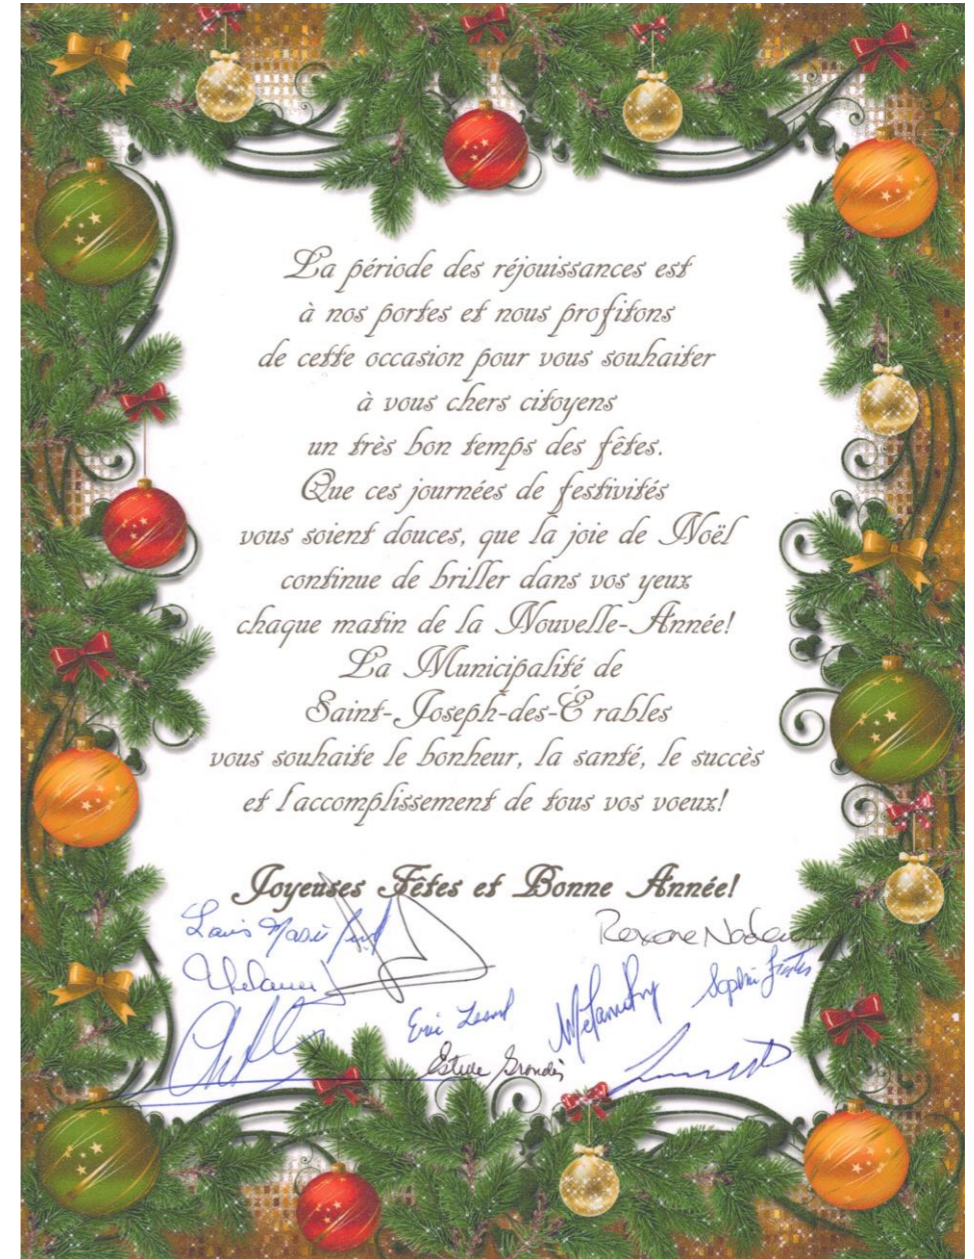 La période des réjouissances est
à nos portes et nous profitons
de cette occasion pour vous souhaiter
à vous chers citoyens
un très bon temps des fêtes.
Que ces journées de festivités
vous soient douces, que la joie de Noël
continue de briller dans vos yeux
chaque matin de la Nouvelle-Année!
La Municipalité de
Saint-Joseph-des-É rables
vous souhaite le bonheur, la santé, le succès
et l'accomplissement de tous vos voeux!
Joyeuses Fêtes et Bonne Année!
Roxane Nadeau
Eric Lessard